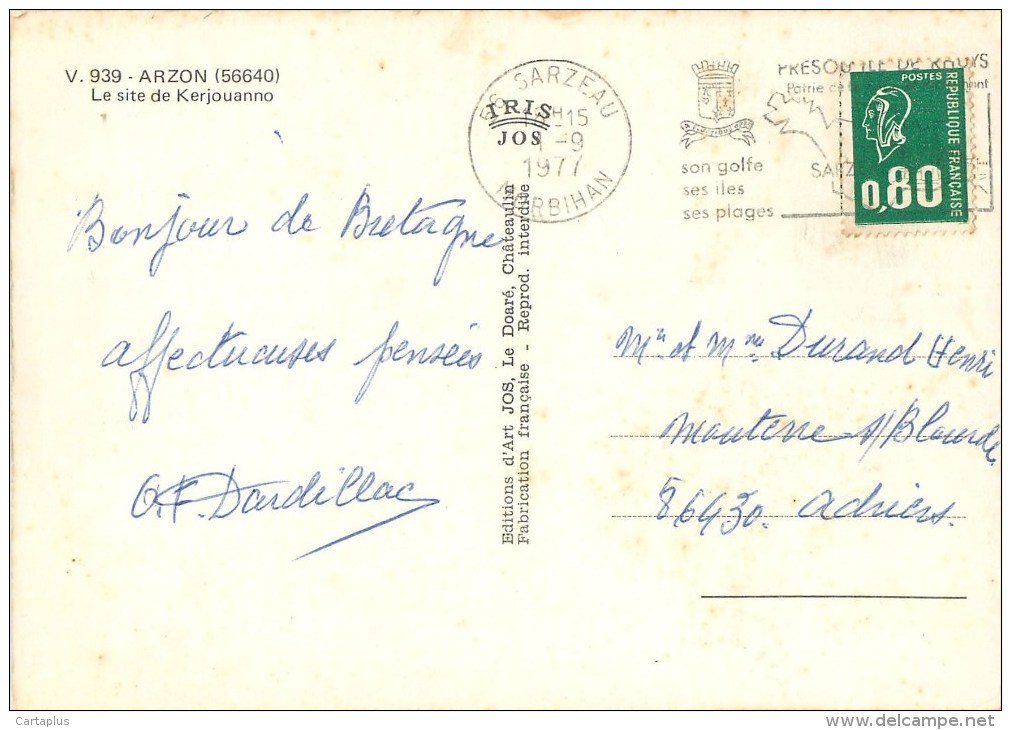 V. 939 - ARZON (56640)
Le site de Kerjouanno
Bonjour de Bretagne
affectueuses pensées
Dardillac
IRIS
JOS
56 SARZEAU
H 15
1-9
1977
MORBIHAN
son golfe
ses iles
ses plages
PRESQU'ILE DE RHUYS
Patrie de
POSTES
REPUBLIQUE FRANÇAISE
0,80
Editions d'Art JOS, Le Doaré, Châteaulin
Fabrication française - Reprod. interdite
Mr et Mme Durand Henri
Mouterre s/Blourde
86430. Adriers.
Cartaplus
www.delcampe.net